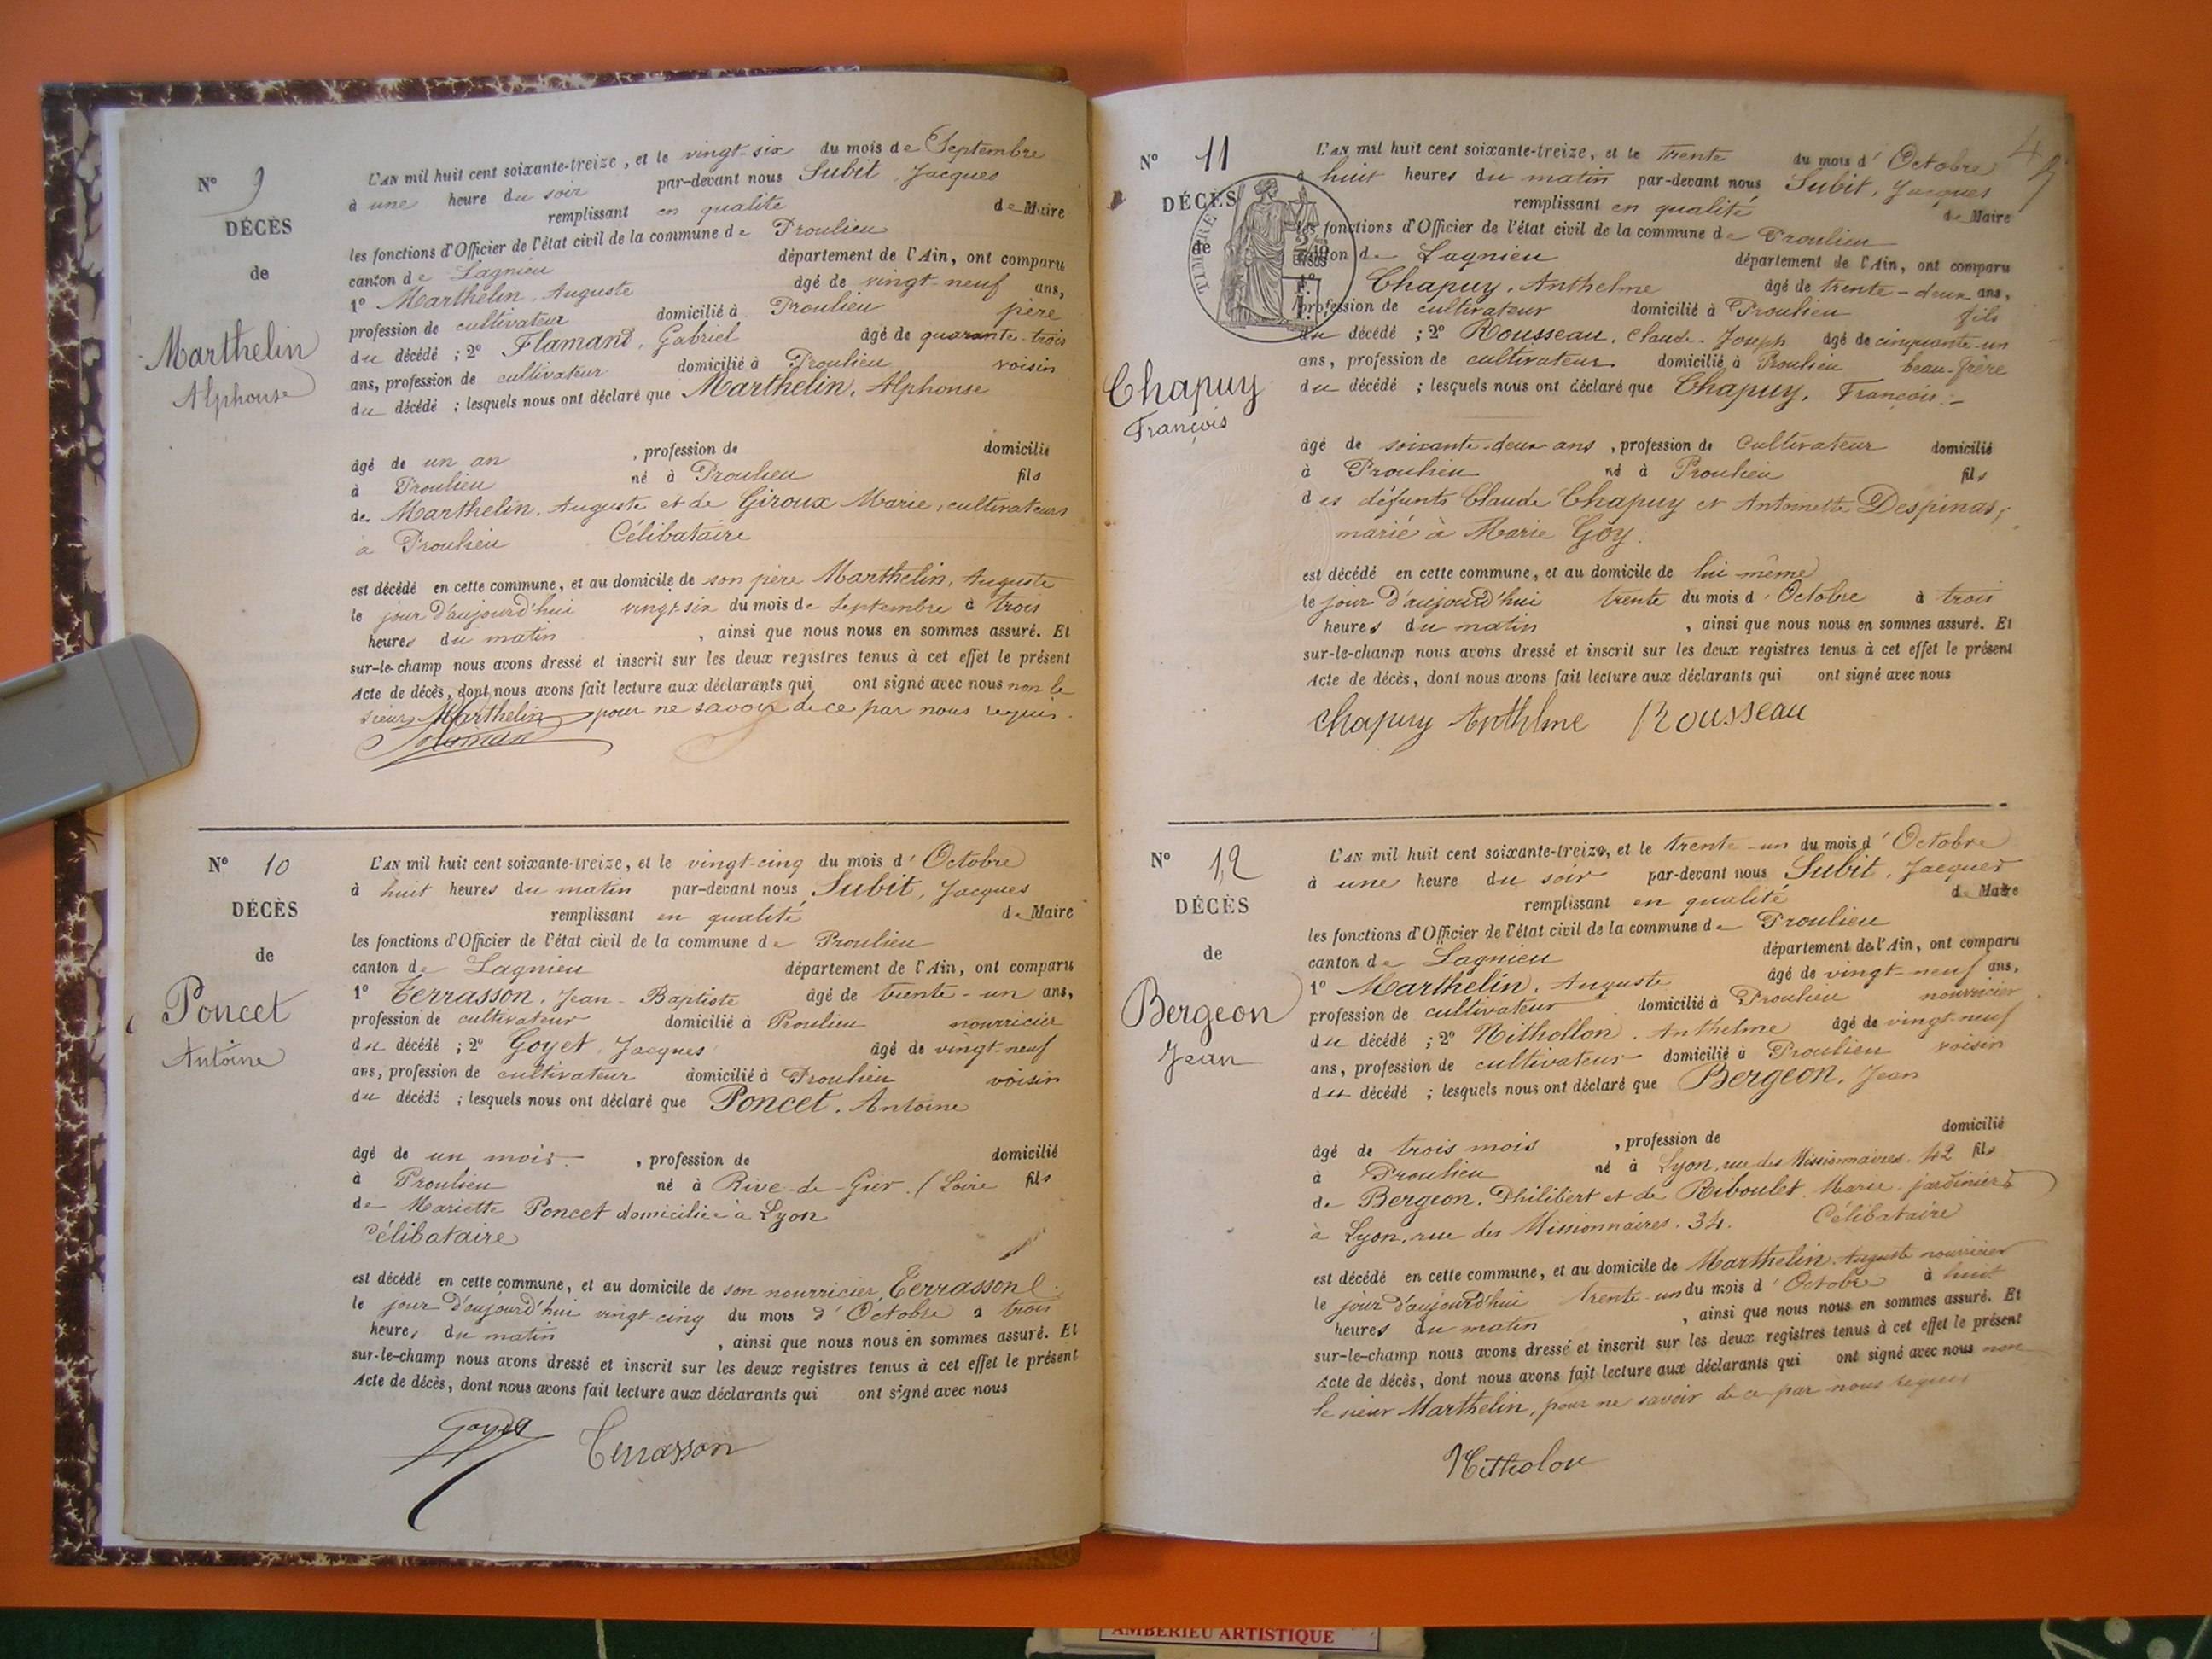 N° 9
DÉCÈS
de
Marthelin
Alphonse
L'AN mil huit cent soixante-treize, et le vingt-six du mois de Septembre
à une heure du soir par-devant nous Subit, Jacques
remplissant en qualité de Maire
les fonctions d'Officier de l'état civil de la commune de Proulieu
canton de Lagnieu département de l'Ain, ont comparu
1° Marthelin, Auguste âgé de vingt-neuf ans,
profession de cultivateur domicilié à Proulieu père
du décédé ; 2° Flamand, Gabriel âgé de quarante-trois
ans, profession de cultivateur domicilié à Proulieu voisin
du décédé ; lesquels nous ont déclaré que Marthelin, Alphonse
âgé de un an , profession de domicilié
à Proulieu né à Proulieu fils
de Marthelin, Auguste et de Giroux Marie, cultivateurs
à Proulieu Célibataire
est décédé en cette commune, et au domicile de son père Marthelin, Auguste
le jour d'aujourd'hui vingt-six du mois de Septembre à trois
heures du matin , ainsi que nous nous en sommes assuré. Et
sur-le-champ nous avons dressé et inscrit sur les deux registres tenus à cet effet le présent
Acte de décès, dont nous avons fait lecture aux déclarants qui ont signé avec nous non le
sieur Marthelin pour ne savoir de ce par nous requis.
N° 10
DÉCÈS
de
Poncet
Antoine
L'AN mil huit cent soixante-treize, et le vingt-cinq du mois d'Octobre
à huit heures du matin par-devant nous Subit, Jacques
remplissant en qualité de Maire
les fonctions d'Officier de l'état civil de la commune de Proulieu
canton de Lagnieu département de l'Ain, ont comparu
1° Terrasson, Jean-Baptiste âgé de trente-un ans,
profession de cultivateur domicilié à Proulieu nourricier
du décédé ; 2° Goyet, Jacques âgé de vingt-neuf
ans, profession de cultivateur domicilié à Proulieu voisin
du décédé ; lesquels nous ont déclaré que Poncet, Antoine
âgé de un mois. , profession de domicilié
à Proulieu né à Rive-de-Gier. (Loire fils
de Mariette Poncet domiciliée à Lyon
Célibataire
est décédé en cette commune, et au domicile de son nourricier, Terrasson
le jour d'aujourd'hui vingt-cinq du mois d'Octobre à trois
heures du matin , ainsi que nous nous en sommes assuré. Et
sur-le-champ nous avons dressé et inscrit sur les deux registres tenus à cet effet le présent
Acte de décès, dont nous avons fait lecture aux déclarants qui ont signé avec nous
Goyet Terrasson
N° 11
DÉCÈS
de
TIMBRE
Chapuy
François
L'AN mil huit cent soixante-treize, et le trente du mois d'Octobre
à huit heures du matin par-devant nous Subit, Jacques
remplissant en qualité de Maire
les fonctions d'Officier de l'état civil de la commune de Proulieu
canton de Lagnieu département de l'Ain, ont comparu
1° Chapuy, Anthelme âgé de trente-deux ans,
profession de cultivateur domicilié à Proulieu fils
du décédé ; 2° Rousseau, Claude-Joseph âgé de cinquante-un
ans, profession de cultivateur domicilié à Proulieu beau-frère
du décédé ; lesquels nous ont déclaré que Chapuy, François
âgé de soixante-deux ans , profession de Cultivateur domicilié
à Proulieu né à Proulieu fils
des défunts Claude Chapuy et Antoinette Despinas,
marié à Marie Goy.
est décédé en cette commune, et au domicile de lui-même
le jour d'aujourd'hui trente du mois d'Octobre à trois
heures du matin , ainsi que nous nous en sommes assuré. Et
sur-le-champ nous avons dressé et inscrit sur les deux registres tenus à cet effet le présent
Acte de décès, dont nous avons fait lecture aux déclarants qui ont signé avec nous
Chapuy Anthlme Rousseau
N° 12
DÉCÈS
de
Bergeon
Jean
L'AN mil huit cent soixante-treize, et le trente-un du mois d'Octobre
à une heure du soir par-devant nous Subit, Jacques
remplissant en qualité de Maire
les fonctions d'Officier de l'état civil de la commune de Proulieu
canton de Lagnieu département de l'Ain, ont comparu
1° Marthelin, Auguste âgé de vingt-neuf ans,
profession de cultivateur domicilié à Proulieu nourricier
du décédé ; 2° Nithollon, Anthelme âgé de vingt-neuf
ans, profession de cultivateur domicilié à Proulieu voisin
du décédé ; lesquels nous ont déclaré que Bergeon, Jean
âgé de trois mois , profession de domicilié
à Proulieu né à Lyon, rue des Missionnaires. 42 fils
de Bergeon, Philibert et de Riboulet, Marie, jardiniers
à Lyon, rue des Missionnaires. 34. Célibataire
est décédé en cette commune, et au domicile de Marthelin Auguste nourricier
le jour d'aujourd'hui trente-un du mois d'Octobre à huit
heures du matin , ainsi que nous nous en sommes assuré. Et
sur-le-champ nous avons dressé et inscrit sur les deux registres tenus à cet effet le présent
Acte de décès, dont nous avons fait lecture aux déclarants qui ont signé avec nous non
le sieur Marthelin, pour ne savoir de ce par nous requis
Nitholon
AMBERIEU ARTISTIQUE